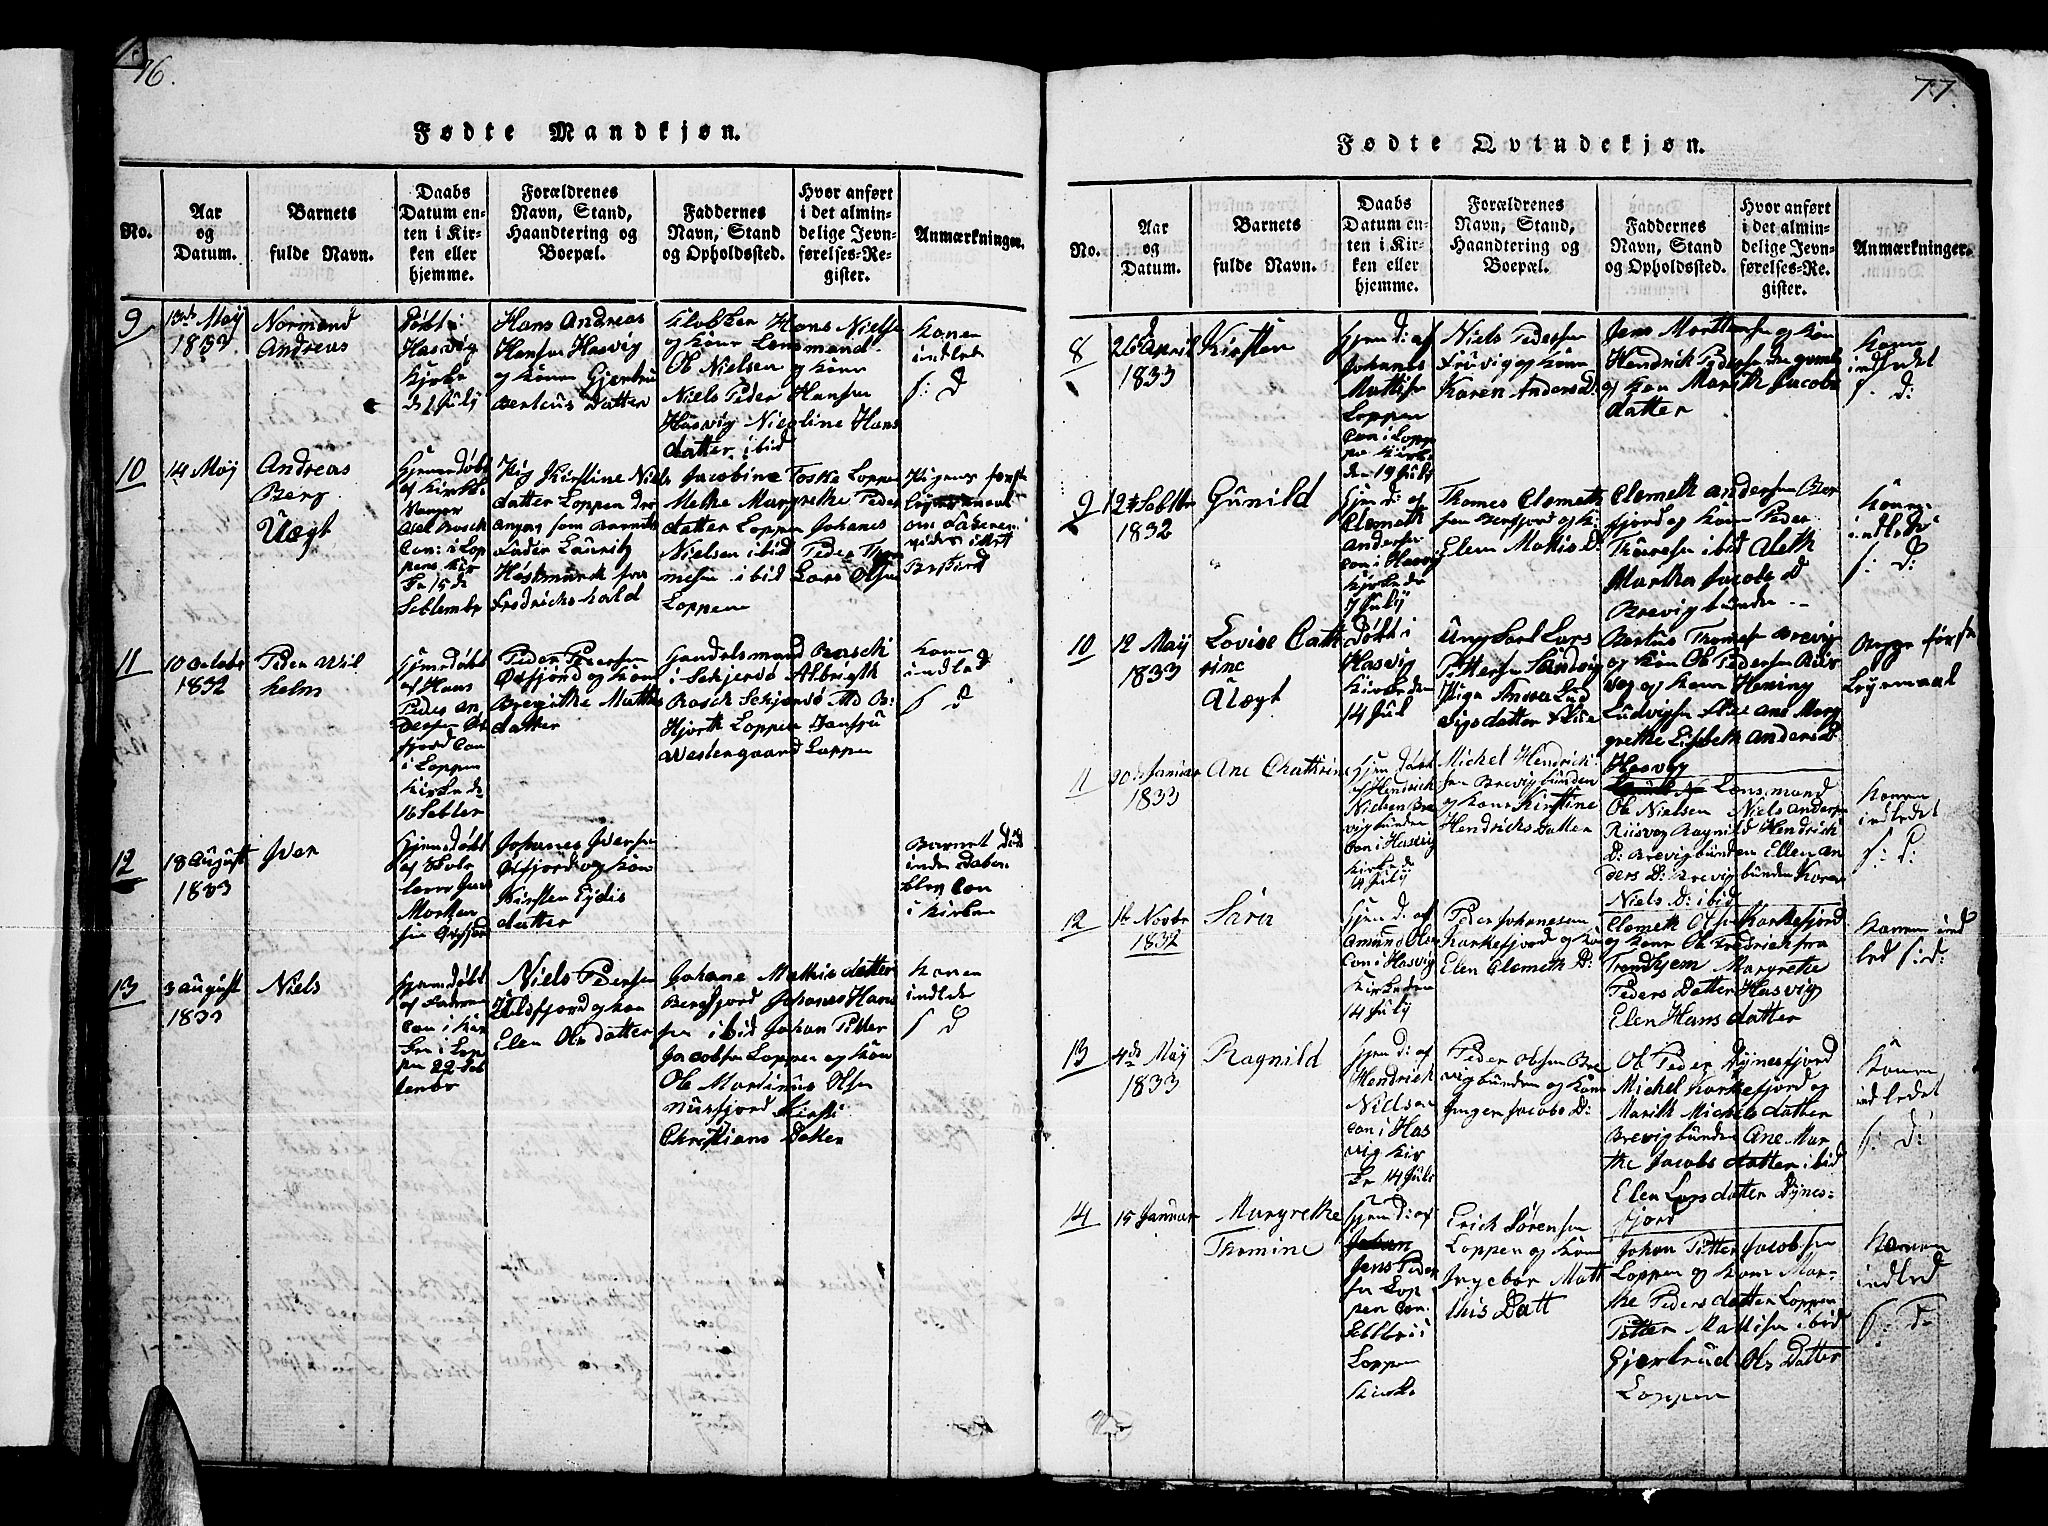 76.
Fødte Mandkjøn.
No.
Aar
og
Datum.
Barnets
fulde Navn.
Daabs
Datum en-
ten i Kir-
ken eller
hjemme.
Forældrenes
Navn, Stand,
Haandtering og
Boepæl.
Faddernes
Navn, Stand
og Opholdssted.
Hvor anført
i det almin-
delige Jevn-
førelses-Re-
gister.
Anmærkninger.
9
13de Maÿ
1833
Normand
Andreas
Døbt i
Hasvig
Kirke
d 7 Julÿ
Hans Andreas
Hansen Hasvig
og Kone Gjertru
Berteus Datter
Klokker Hans Nielse
og Kone Lensmand
Ole Nielsen og Kone
Niels Peder Hansen
Hasvig Nicoline Hans
datter ibid
Konen
indlede
s: D
10
14 Maÿ
Andreas
Berg
Uægt
Hjemedøbt
af Kirke
Sanger
Axel Rasch
Con: i Lop
pens Kir
ke 15 de
Septembr
Pig Kirstine Niels
datter Loppen
angav som Barnets
Fader Laurits
Høstmark fra
Fredrichshald
Jacobine Foske Loppen
Methe Margrethe Peders
datter Loppen Johanes
Nielsen ibid Peder Thom
mesen ibid Lars Olsen
Loppen
Pigens første
Leyermaal
11
10 Octobr
1832
Peder Wil
helm
Hjemedøbt
af Hans
Peder An
dersen Øx
fjord Con
i Loppen
Kirke d
16 Sebter
Peder Pedersen
Øxfjord og Kone
Bregithe Mathis
datter
Handelsmand Rasch
i Sckjervö Albrigth
Rasch Sckjervö Md B:
Hjorth Loppen Jomfru
Westergaard Loppen
Konen
indled
s D
12
18 August
1833
Iver
Hjemedøbt
af Skole
lærer Jens
Morten
sen Øxfjord
Johanes Iversen
Øxfjord og Kone
Kirsten Eydis
datter
Barnet død
inden Daaben
blev Con
i Kirken
13
3 August
1833
Niels
Hjemedøbt
af Faderen
Con i Kir
ken i Lop
pen 22 Seb
tenbr
Niels Pedersen
Uldsfjord og Kone
Elen Ols datter
Johane Mathis datter
Bergsfjord Johanes Hans
sen ibid Johan Petter
Jacobsen Loppen og Kone
Ole Martinus Olsen
Nursfjord Kirsti
Christians Datter
Konen
indlede
s D
77.
Fødte Qvindekjøn.
No.
Aar
og
Datum.
Barnets
fulde Navn.
Daabs
Datum en-
ten i Kir-
ken eller
hjemme.
Forældrenes
Navn, Stand,
Haandtering og
Boepæl.
Faddernes
Navn, Stand
og Opholdssted.
Hvor anført
i det almin-
delige Jevn-
førelses-Re-
gister.
Anmærkninger.
8
26 d April
1833
Kirsten
Hjem D: af
Johanes
Mattisen
Loppen
Con i Lopp
pe Kirk
den 19 Juli
Niels Pedersen
Früvig og Kone
Karen Anders D:
Jens Morttensen og Kone
Hendrick Pedersen den gamle
og Kone Marith Jacobs
datter
Konen
indledet
s. D:
9
12te Sebtbr
1832
Gunild
Hjem D: af
Clemeth
Andersen
Con i Hasvig
Kirke de
7 Julÿ
Thomes Clemeth
sen Bersfjord og K:
Elen Mathis D:
Clemeth Andersen Ber
fjord og Kone Peder
Thuresen ibid Aleth
Martha Jacobs D
Brevigbunden
Konen
indledt
s: D:
10
12 Maÿ
1833
Lovise Cath
rine
Uægt
Døbt i
Hasvig
Kirke den
14 Jul
Ung Karl Lars
Pettersen Sandvig
Piga Anna Lud
vigs datter
Bertus Thomesen Brevig
og Kone Ole Pedersen Riis
vog og Kone Hening
Ludvigsen Ane Mar
grethe Lisbeth Anders D:
Hasvig
Begge første
Leyermaal
11
30 d Januar
1833
Ane Chathrine
Hjem Døbt
af Hendrick
Nielsen Bre
vigbunden
Con i Hasvig
Kirke d
14 Julÿ
Michel Hendrick
sen Brevigbunden
og Kone Kirstine
Hendrichs Datter
Lensmand
Ole Nielsen Niels Anders
Riisvog Ragnild Hendrick
D: Brevigbunden Ellen An
ders D: Brevigbunden Karen
Niels D: ibid
Konen
indledet
s: D:
12
1te Novbr
1832
Sara
Hjem D: af
Amund Olsen
Con i Hasvig
Kirke den
14 Julÿ
Peder Johanesen
Karkefjord og Kone
Elen Clemeth D:
Clemeth Olsen Karkefjord
og Kone Ole Fredrich fra
Trondhjem Margrethe
Peders Datter Hasvig
Elen Hans datter
Konen ind
led s: d:
13
4de Maÿ
1833
Ragnild
Hjem D: af
Hendrick
Nielsen
Con i Has
vig Kir
ke 14 Juli
Peder Olsen Bre
vigbunden og Kone
Inger Jacobs D:
Ole Peder Dÿnesfjord
Michel Karkefjord og
Marith Michels datter
Brevigbunden Ane Mar
the Jacobs datter ibid
Elen Lars datter Dÿnes-
fjord
Konen
indledet
s: D:
14
15 Januar
Margrethe
Thomine
Hjem D: af
Jens Peder
sen Lop
pen Con:
Sebtbr i
Loppen
Kirke
Erick Sörensen
Loppen og Kone
Ingebor Matt
his Datt
Johan Petter Jacobsen
Loppen og Kone Mar-
the Peders datter Loppen
Petter Mattisen ibid
Gjertrud Ols Datter
Loppen
Konen
indled
s: D: